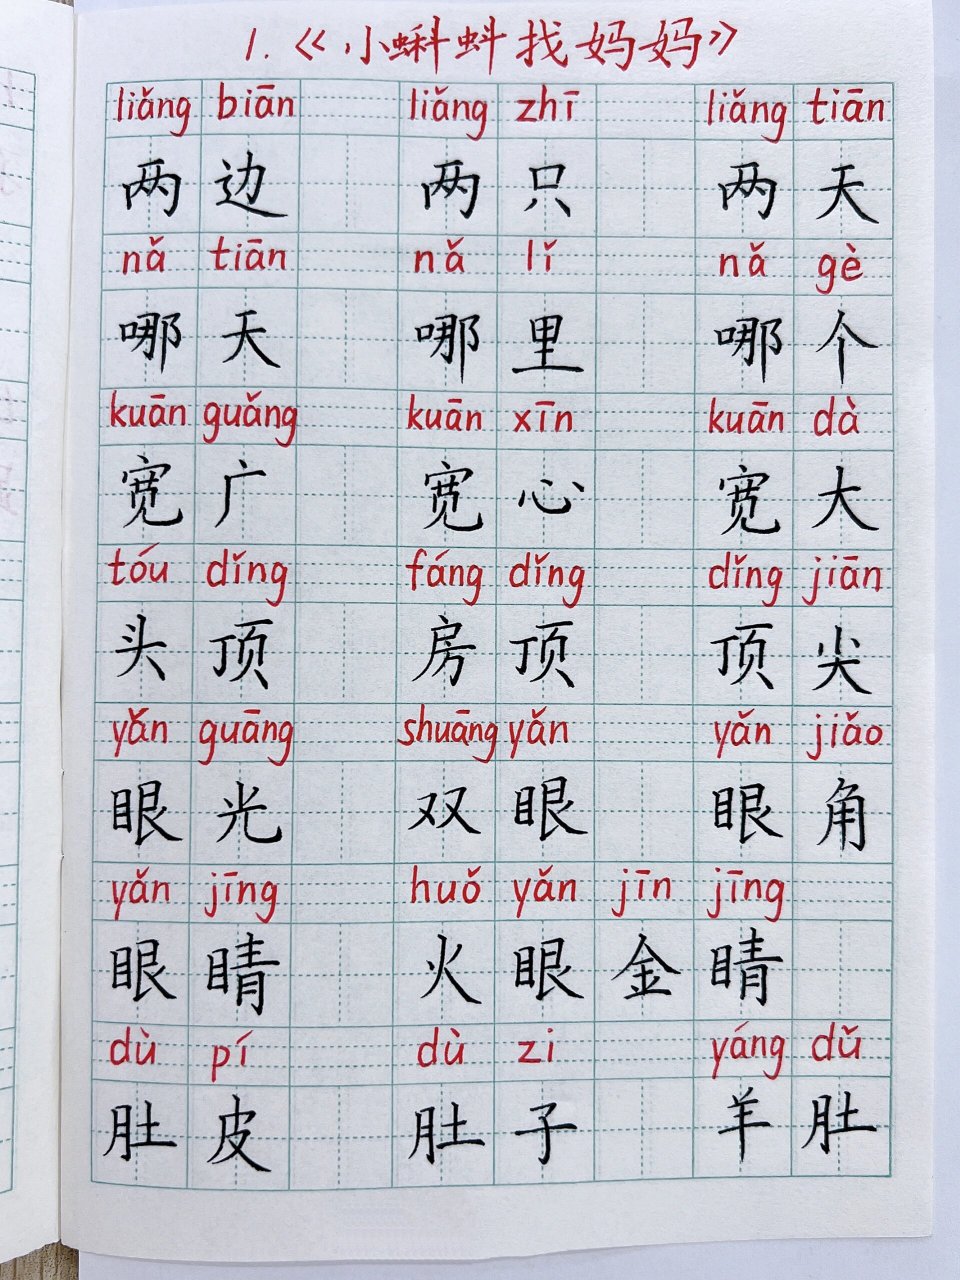 1.《小蝌蚪找妈妈》
liǎng biān liǎng zhī liǎng tiān
两边 两只 两天
nǎ tiān nǎ lǐ nǎ gè
哪天 哪里 哪个
kuān guǎng kuān xīn kuān dà
宽广 宽心 宽大
tóu dǐng fáng dǐng dǐng jiān
头顶 房顶 顶尖
yǎn guāng shuāng yǎn yǎn jiǎo
眼光 双眼 眼角
yǎn jīng huǒ yǎn jīn jīng
眼睛 火眼金睛
dù pí dù zi yáng dǔ
肚皮 肚子 羊肚